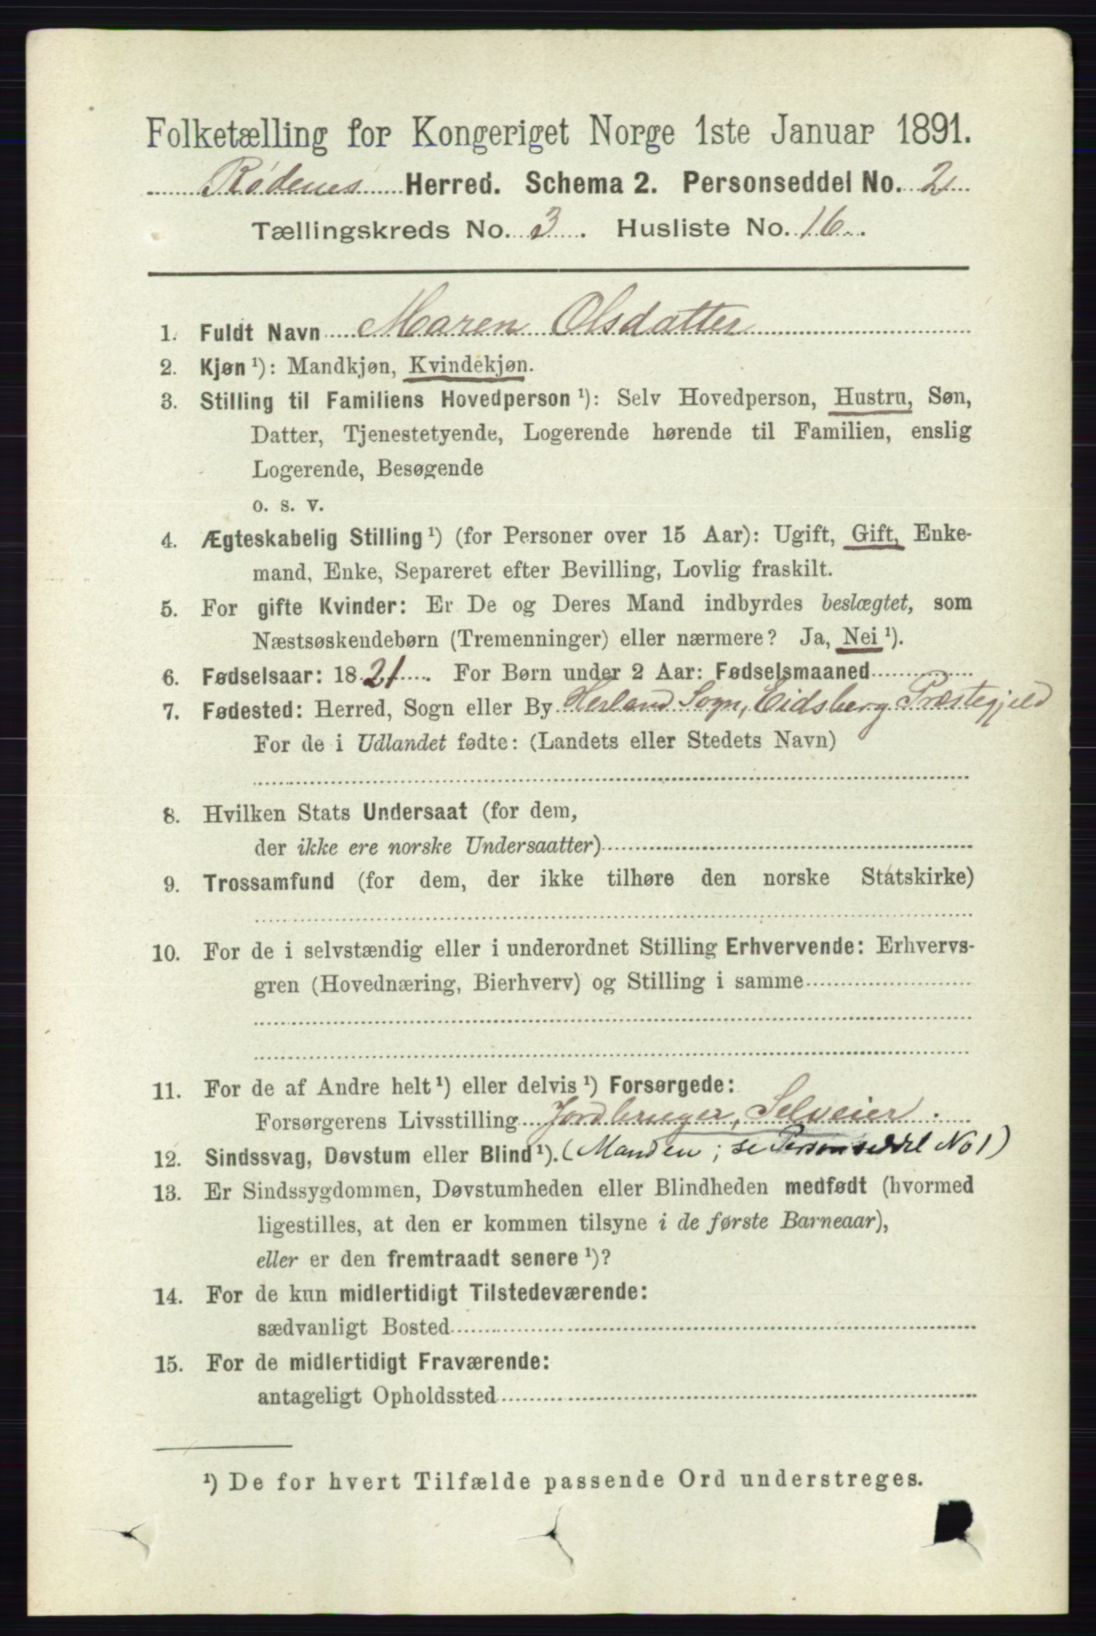 Folketælling for Kongeriget Norge 1ste Januar 1891.
Rødenes Herred. Schema 2. Personseddel No. 2
Tællingskreds No. 3. Husliste No. 16.
1. Fuldt Navn Maren Olsdatter
2. Kjøn ¹): Mandkjøn, Kvindekjøn.
3. Stilling til Familiens Hovedperson ¹): Selv Hovedperson, Hustru, Søn,
Datter, Tjenestetyende, Logerende hørende til Familien, enslig
Logerende, Besøgende
o. s. v.
4. Ægteskabelig Stilling ¹) (for Personer over 15 Aar): Ugift, Gift, Enke-
mand, Enke, Separeret efter Bevilling, Lovlig fraskilt.
5. For gifte Kvinder: Er De og Deres Mand indbyrdes beslægtet, som
Næstsøskendebørn (Tremenninger) eller nærmere? Ja, Nei ¹).
6. Fødselsaar: 1821. For Børn under 2 Aar: Fødselsmaaned
7. Fødested: Herred, Sogn eller By Herland Sogn, Eidsberg Præstegjeld
For de i Udlandet fødte: (Landets eller Stedets Navn)
8. Hvilken Stats Undersaat (for dem,
der ikke ere norske Undersaatter)
9. Trossamfund (for dem, der ikke tilhøre den norske Statskirke)
10. For de i selvstændig eller i underordnet Stilling Erhvervende: Erhvervs-
gren (Hovednæring, Bierhverv) og Stilling i samme
11. For de af Andre helt ¹) eller delvis ¹) Forsørgede:
Forsørgerens Livsstilling Jordbruger, Selveier.
12. Sindssvag, Døvstum eller Blind ¹). (Manden; se Personseddel No 1)
13. Er Sindssygdommen, Døvstumheden eller Blindheden medfødt (hvormed
ligestilles, at den er kommen tilsyne i de første Barneaar),
eller er den fremtraadt senere ¹)?
14. For de kun midlertidigt Tilstedeværende:
sædvanligt Bosted
15. For de midlertidigt Fraværende:
antageligt Opholdssted
¹) De for hvert Tilfælde passende Ord understreges.